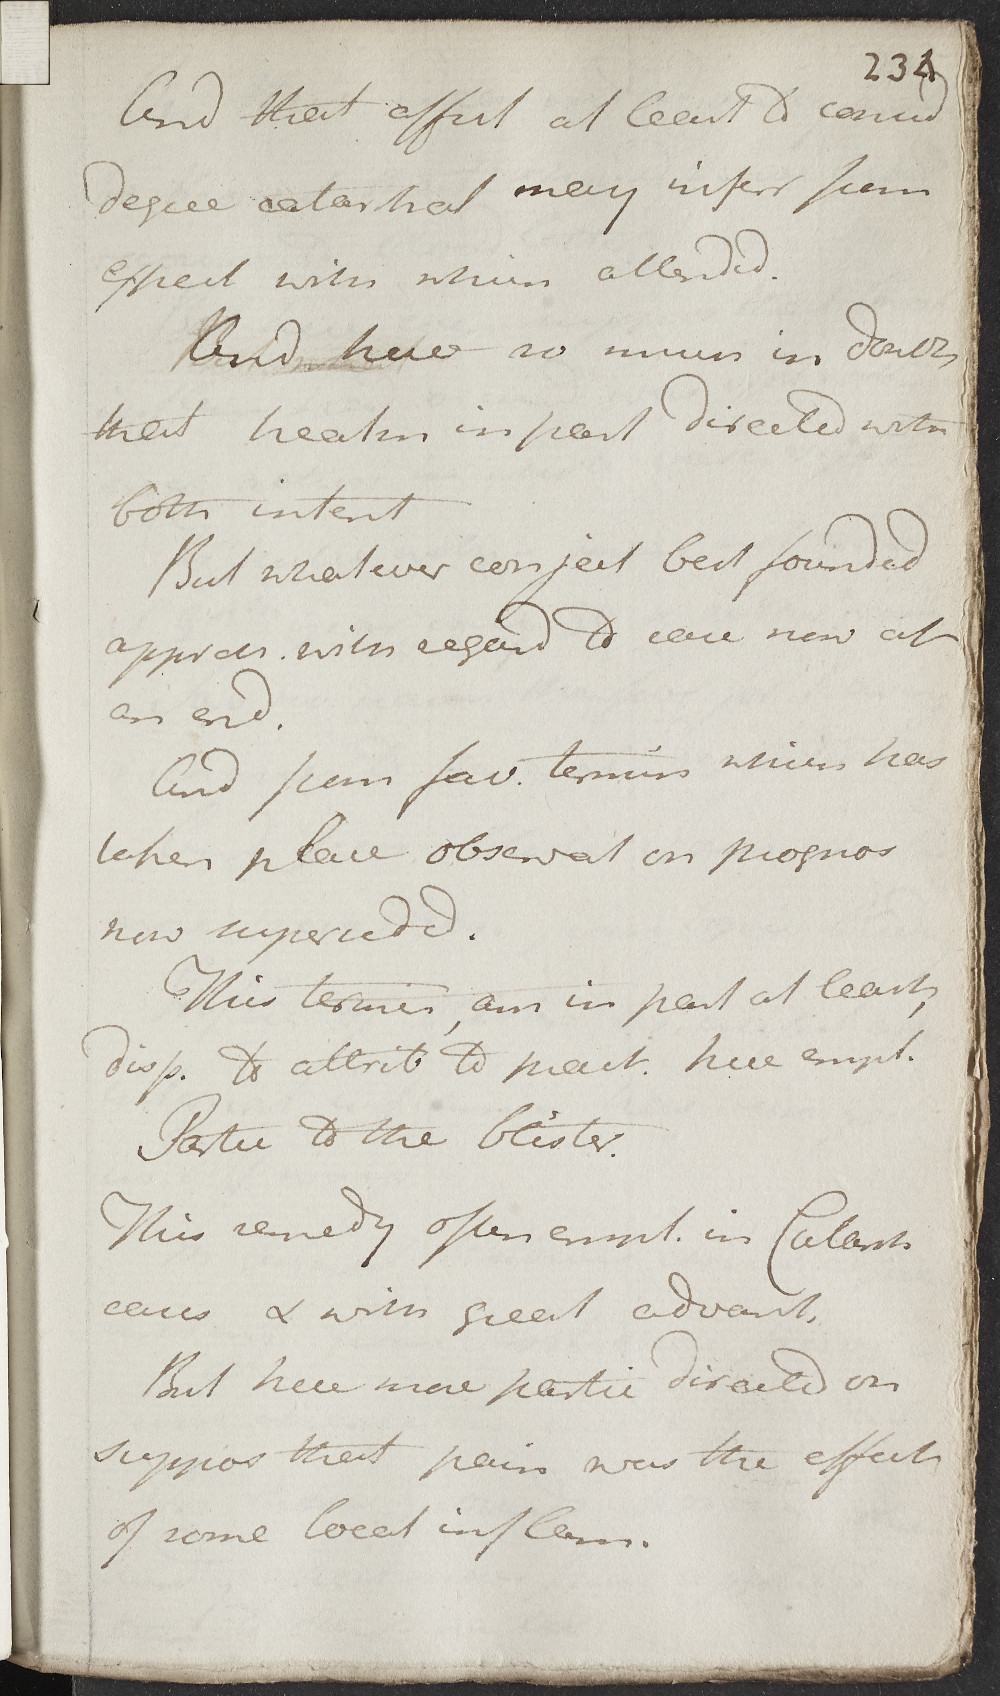 234
And that affect at least to consid
degree catarrhal may infer from
expect with which attended.
And here so much in doubt,
that health in part directed with
both intent
But whatever conject best founded
appreh. with regard to case now at
an end.
And from fav. termin which has
taken place observat on prognos
now superseded.
This termin, am in part at least,
disp. to attrib to pract. here empl.
Partic to the blister.
This remedy often empl. in Catarrh
cases & with great advant.
But here more partic directed on
suppos that pain was the effect
of some local inflam.